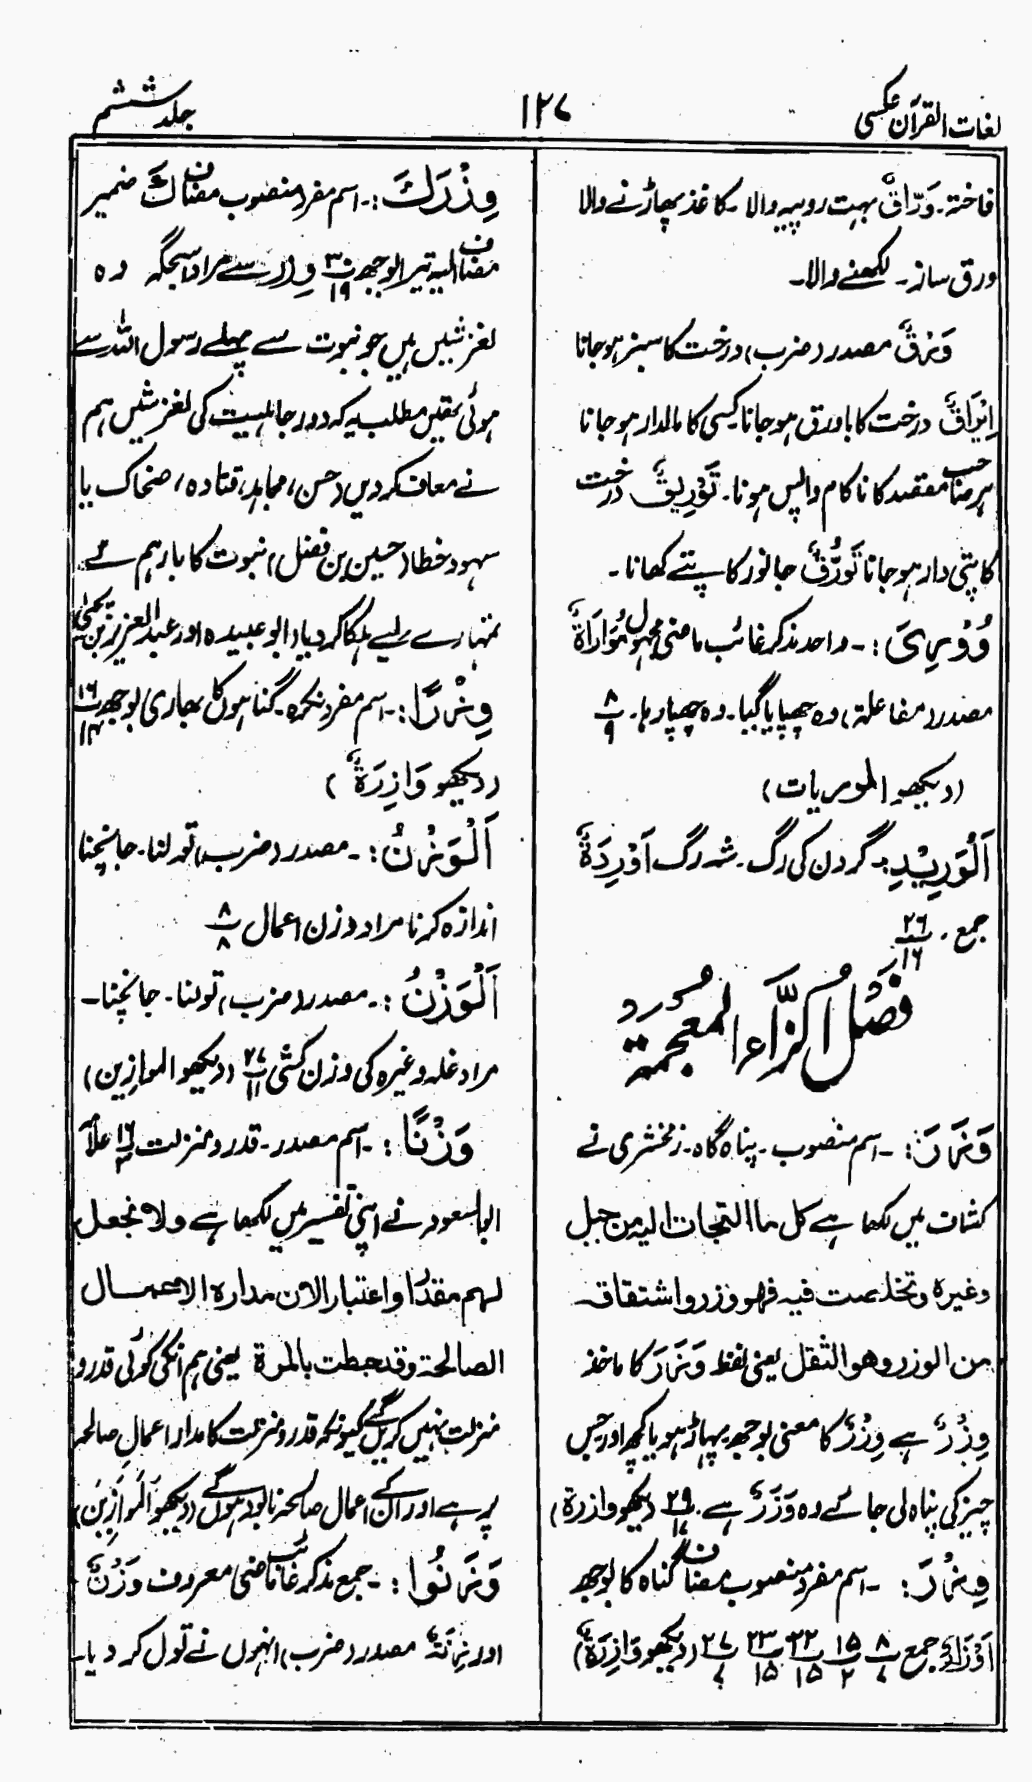 لغات القرآن عکسی
۱۲۷
جلد ششم
فاختہ۔ وَرَّاقٌ بہت روپیہ والا۔ کاغذ پھاڑنے والا
ورق ساز۔ لکھنے والا۔
وَرْقٌ مصدر (ضرب) درخت کا سبز ہوجانا
اِیْرَاقٌ درخت کا باورق ہوجانا کسی کا مالدار ہوجانا
ہر صاحب مقصد کا ناکام واپس ہونا۔ تَوْرِیْقٌ درخت
کا پتی دار ہوجانا تَوَرُّقٌ جانور کا پتے کھانا۔
وُوْرِیَ :۔ واحد مذکر غائب ماضی مجہول مُوَارَاةٌ
مصدر (مفاعلة) وہ چھپایا گیا۔ وہ چھپا رہا۔ ۸/۹
(دیکھو الموریات)
اَلْوَرِیْدِ :۔ گردن کی رگ۔ شہ رگ اَوْرِدَةٌ
جمع۔ ۲۶/۱۶
فَصْلُ الزَّاءِ الْمُعْجَمَة
وَزَرَ :۔ اسم منصوب۔ پناہ گاہ۔ زمخشری نے
کشاف میں لکھا ہے کل ما التجات الیہ من جبل
وغیرہ وتخلصت فیہ فھو وزر واشتقاقہ
من الوزر وھو الثقل یعنی لفظ وَزَرَ کا ماخذ
وِزْرٌ ہے وِزْرٌ کا معنی بوجھ پہاڑ ہو یا کچھ اور جس
چیز کی پناہ لی جائے وہ وَزَرٌ ہے۔ ۲۹/۱۷ دیکھو وازرة)
وِزْرَ :۔ اسم مفرد منصوب مضاف گناہ کا بوجھ
اَوْزَارٌ جمع ۸/۷ ۱۵/۲ ۲۲/۱۵ ۲۳/۱۵ ۲۷/۷ (دیکھو وَازِرَةٌ)
وِزْرَكَ :۔ اسم مفرد منصوب مضاف كَ ضمیر
مضاف الیہ تیرا بوجھ ۳۰/۱۹ وزر سے مراد اسجگہ وہ
لغزشیں ہیں جو نبوت سے پہلے رسول اللہ سے
ہوئی تھیں مطلب یہ کہ دور جاہلیت کی لغزشیں ہم
نے معاف کر دیں (حسن، مجاہد، قتادہ، ضحاک) یا
سہو و خطا (حسین بن فضل) نبوت کا بار ہم نے
تمہارے لیے ہلکا کر دیا (ابو عبیدہ اور عبد العزیز بن یحییٰ)
وِزْرًا :۔ اسم مفرد نکرہ۔ گناہوں کا بھاری بوجھ ۱۶/۱۴
(دیکھو وَازِرَةٌ)
اَلْوَزْنُ :۔ مصدر (ضرب) تولنا۔ جانچنا
اندازہ کرنا مراد وزن اعمال ۸/۸
اَلْوَزْنُ :۔ مصدر (ضرب) تولنا۔ جانچنا۔
مراد غلہ وغیرہ کی وزن کشی ۲۷/۱۱ (دیکھو الموازین)
وَزْنًا :۔ اسم مصدر۔ قدر و منزلت ۱۶/۳ علامہ
ابوالسعود نے اپنی تفسیر میں لکھا ہے ولا نجعل
لھم مقدارا واعتبارا لان مدارہ الاعمال
الصالحة وقد حبطت بالمرة یعنی ہم انکی کوئی قدر و
منزلت نہیں کریں گے کیونکہ قدر و منزلت کا مدار اعمال صالحہ
پر ہے اور ان کے اعمال صالحہ نابود ہوں گے (دیکھو اَلْمَوَازِیْنَ)
وَزَنُوا :۔ جمع مذکر غائب ماضی معروف وَزْنٌ
اور زِنَةٌ مصدر (ضرب) انہوں نے تول کر دیا۔